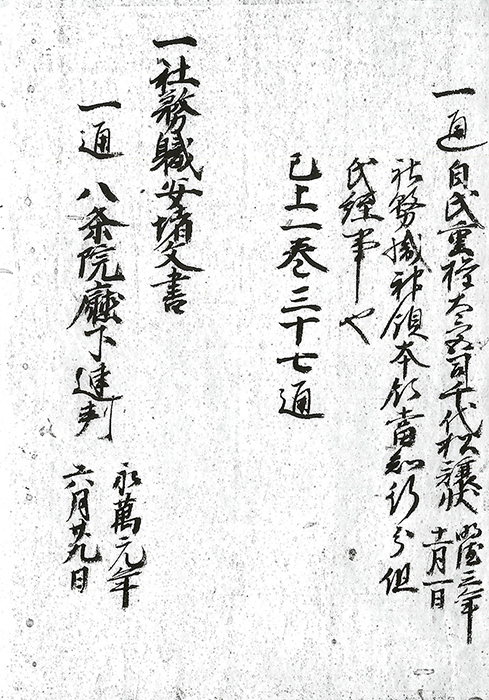 一通 自氏重於大宮司千代松譲状 明應三年
十一月一日
社務職神領本領當知行分但
氏經事也
已上一巻三十七通
一社務職安堵文書
一通 八条院廳下連判 永萬元年
六月廿九日